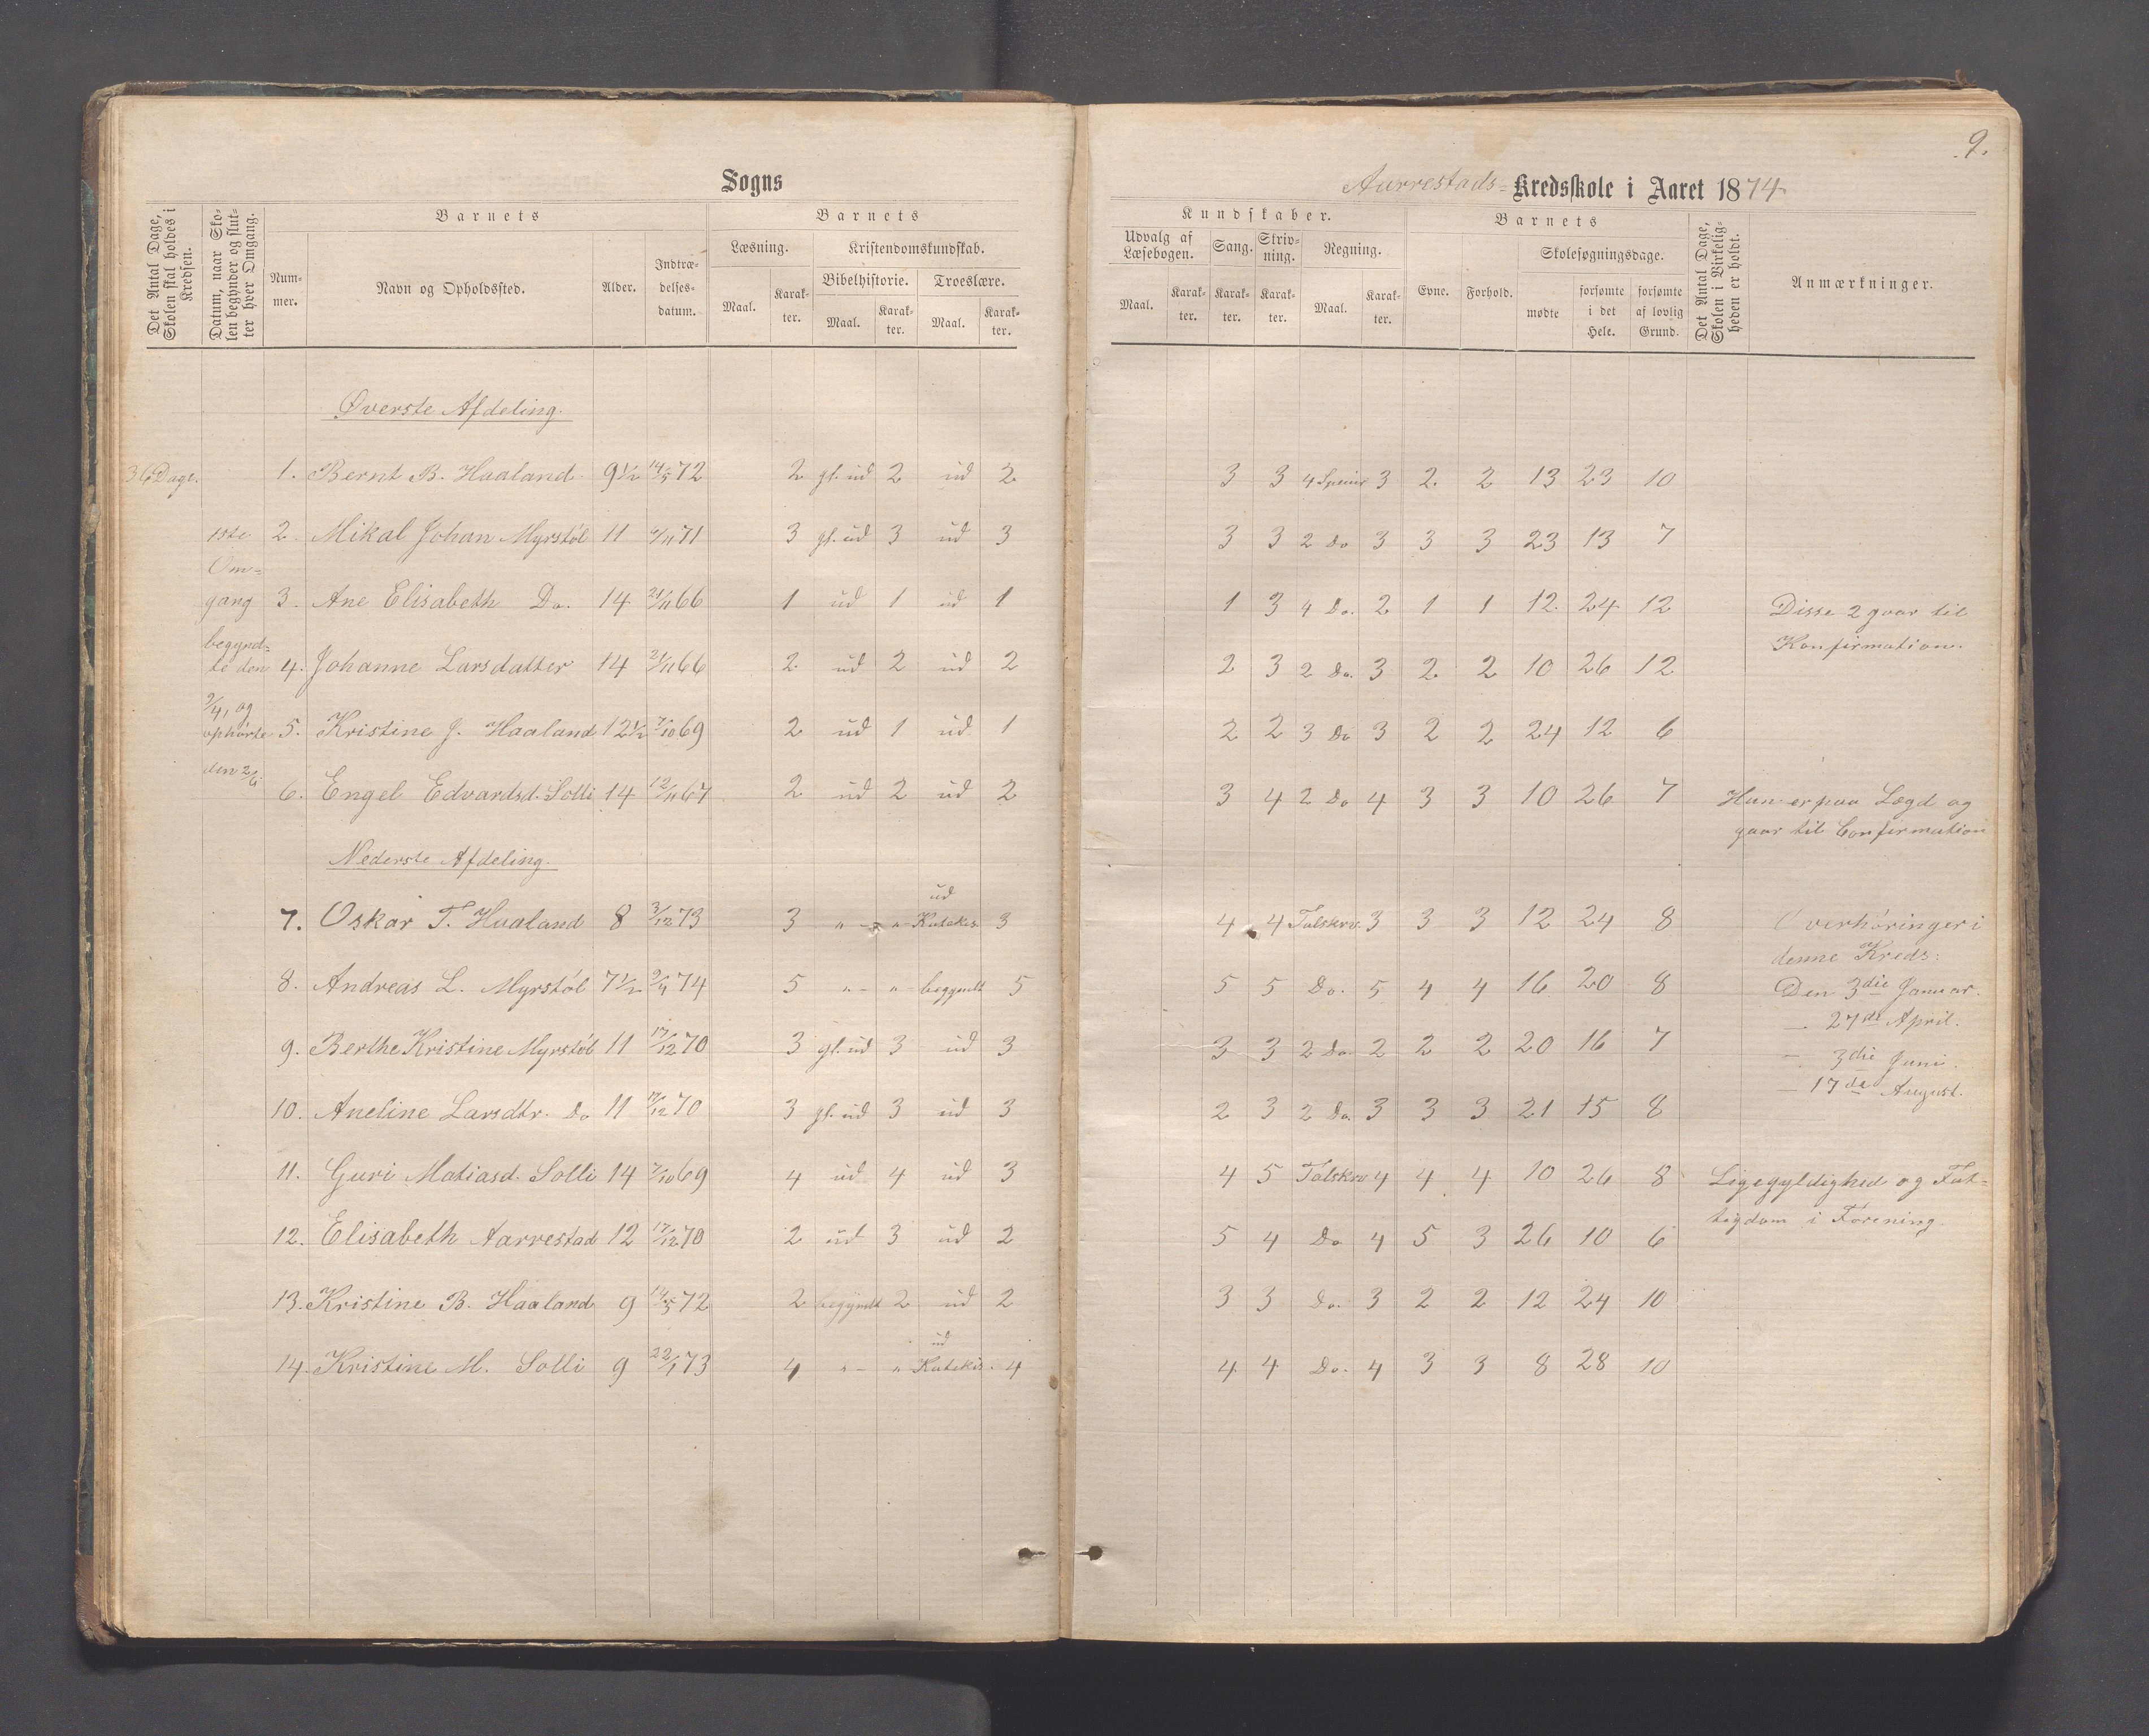 9.
Sogns
Aarrestads- Kredsskole i Aaret 1874
Det Antal Dage, Skolen skal holdes i Kredsen.
Datum, naar Skolen begynder og slutter hver Omgang.
Nummer.
Barnets
Navn og Opholdssted.
Alder.
Indtrædelsesdatum.
Barnets
Læsning.
Kristendomskundskab.
Bibelhistorie.
Troeslære.
Maal.
Karakter.
Maal.
Karakter.
Maal.
Karakter.
Kundskaber.
Udvalg af Læsebogen.
Sang.
Skrivning.
Regning.
Maal.
Karakter.
Karakter.
Karakter.
Maal.
Karakter.
Barnets
Evne.
Forhold.
Skolesøgningsdage.
mødte
forsømte i det Hele.
forsømte af lovlig Grund.
Det Antal Dage, Skolen i Virkeligheden er holdt.
Anmærkninger.
Øverste Afdeling.
36 Dage. 1. Bernt B. Haaland 9½ 14/5 72 2 gl. ud 2 ud 2 3 3 4 Speuis 3 2 2 13 23 10
1ste 2 Mikal Johan Myrstøl 11 6/11 71 3 gl. ud 3 ud 3 3 3 2 Do 3 3 3 23 13 7
Om-
gang 3. Ane Elisabeth Do. 14 21/11 66 1 ud 1 ud 1 1 3 4 Do. 2 1 1 12 24 12 Disse 2 gaar til
begynd- Konfirmation.
te den 4. Johanne Larsdatter 14 21/11 66 2 ud 2 ud 2 2 3 2 Do. 3 2 2 10 26 12
9/4, og
ophørte 5. Kristine J. Haaland 12½ 7/10 69 2 ud 1 ud 1 2 2 3 Do 3 2 2 24 12 6
den 2/6. 6. Engel Edvardsd. Solli 14 12/11 67 2 ud 2 ud 2 3 4 2 Do 4 3 3 10 26 7 Hun er paa Lægd og
gaar til Confirmation
Nederste Afdeling.
ud
7. Oskar T. Haaland 8 3/12 73 3 " - " - Katekis. 3 4 4 Talskrv. 3 3 3 12 24 8 Overhøringer i
denne Kreds:
8. Andreas L. Myrstøl 7½ 9/4 74 5 " - " - begyndt 5 5 5 Do. 5 4 4 16 20 8 Den 3die Januar.
— 27de April.
9. Berthe Kristine Myrstøl 11 17/12 70 3 gl. ud 3 ud 3 3 3 2 Do. 2 2 2 20 16 7
— 3die Juni.
— 17de August.
10. Aneline Larsdtr. Do 11 17/12 70 3 gl. ud 3 ud 3 2 3 2 Do. 3 3 3 21 15 8
11. Guri Matiasd. Solli 14 7/10 69 4 ud 4 ud 3 4 5 Talskrv 4 4 4 10 26 8 Ligegyldighed og Fat-
tigdom i Forening.
12. Elisabeth Aarrestad 12 17/12 70 2 ud 3 ud 2 5 4 Do 4 5 3 26 10 6
13. Kristine B. Haaland 9 14/5 72 2 begyndt 2 ud 2 3 3 Do. 3 2 2 12 24 10
ud
14. Kristine M. Solli 9 22/1 73 4 " - " Katekis. 4 4 4 Do. 4 3 3 8 28 10